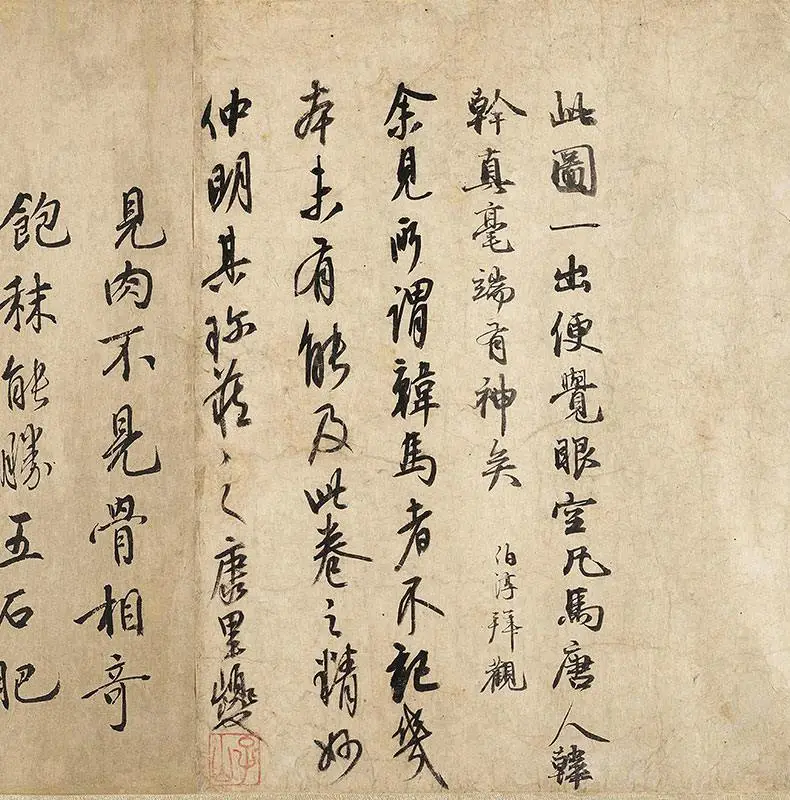 此圖一出便覺眼空凡馬唐人韓
幹真毫端有神矣
伯淳拜觀
余見所謂韓馬者不記幾
本未有能及此卷之精妙
仲明其珍藏〻之康里巎
子山
見肉不見骨相奇
飽秣能勝五石肥